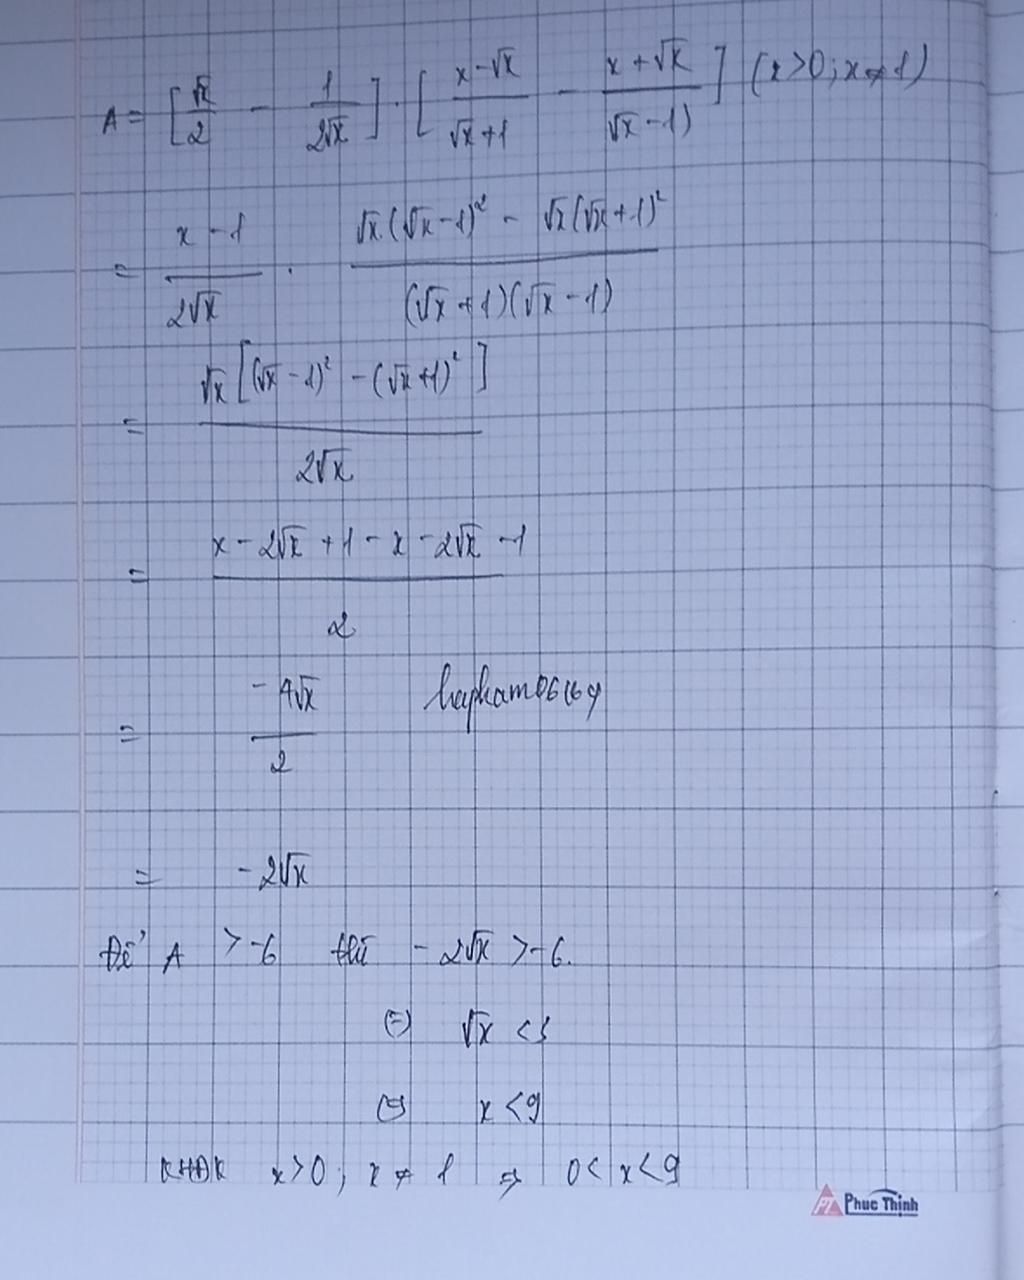 A = [√x/2 - 1/2√x] . [x-√x/√x+1 - x+√x/√x-1)] (x>0; x≠1)
= x-1/2√x . √x.(√x-1)² - √x(√x+1)²/(√x+1)(√x-1)
= √x[(√x-1)² - (√x+1)²]/2√x
= x-2√x+1-x-2√x-1/2
= -4√x/2
= -2√x
Để A >-6 thì -2√x >-6.
(=) √x <3
(=) x <9
KHĐK x>0; x≠1 => 0< x<9
PT Phuc Thinh